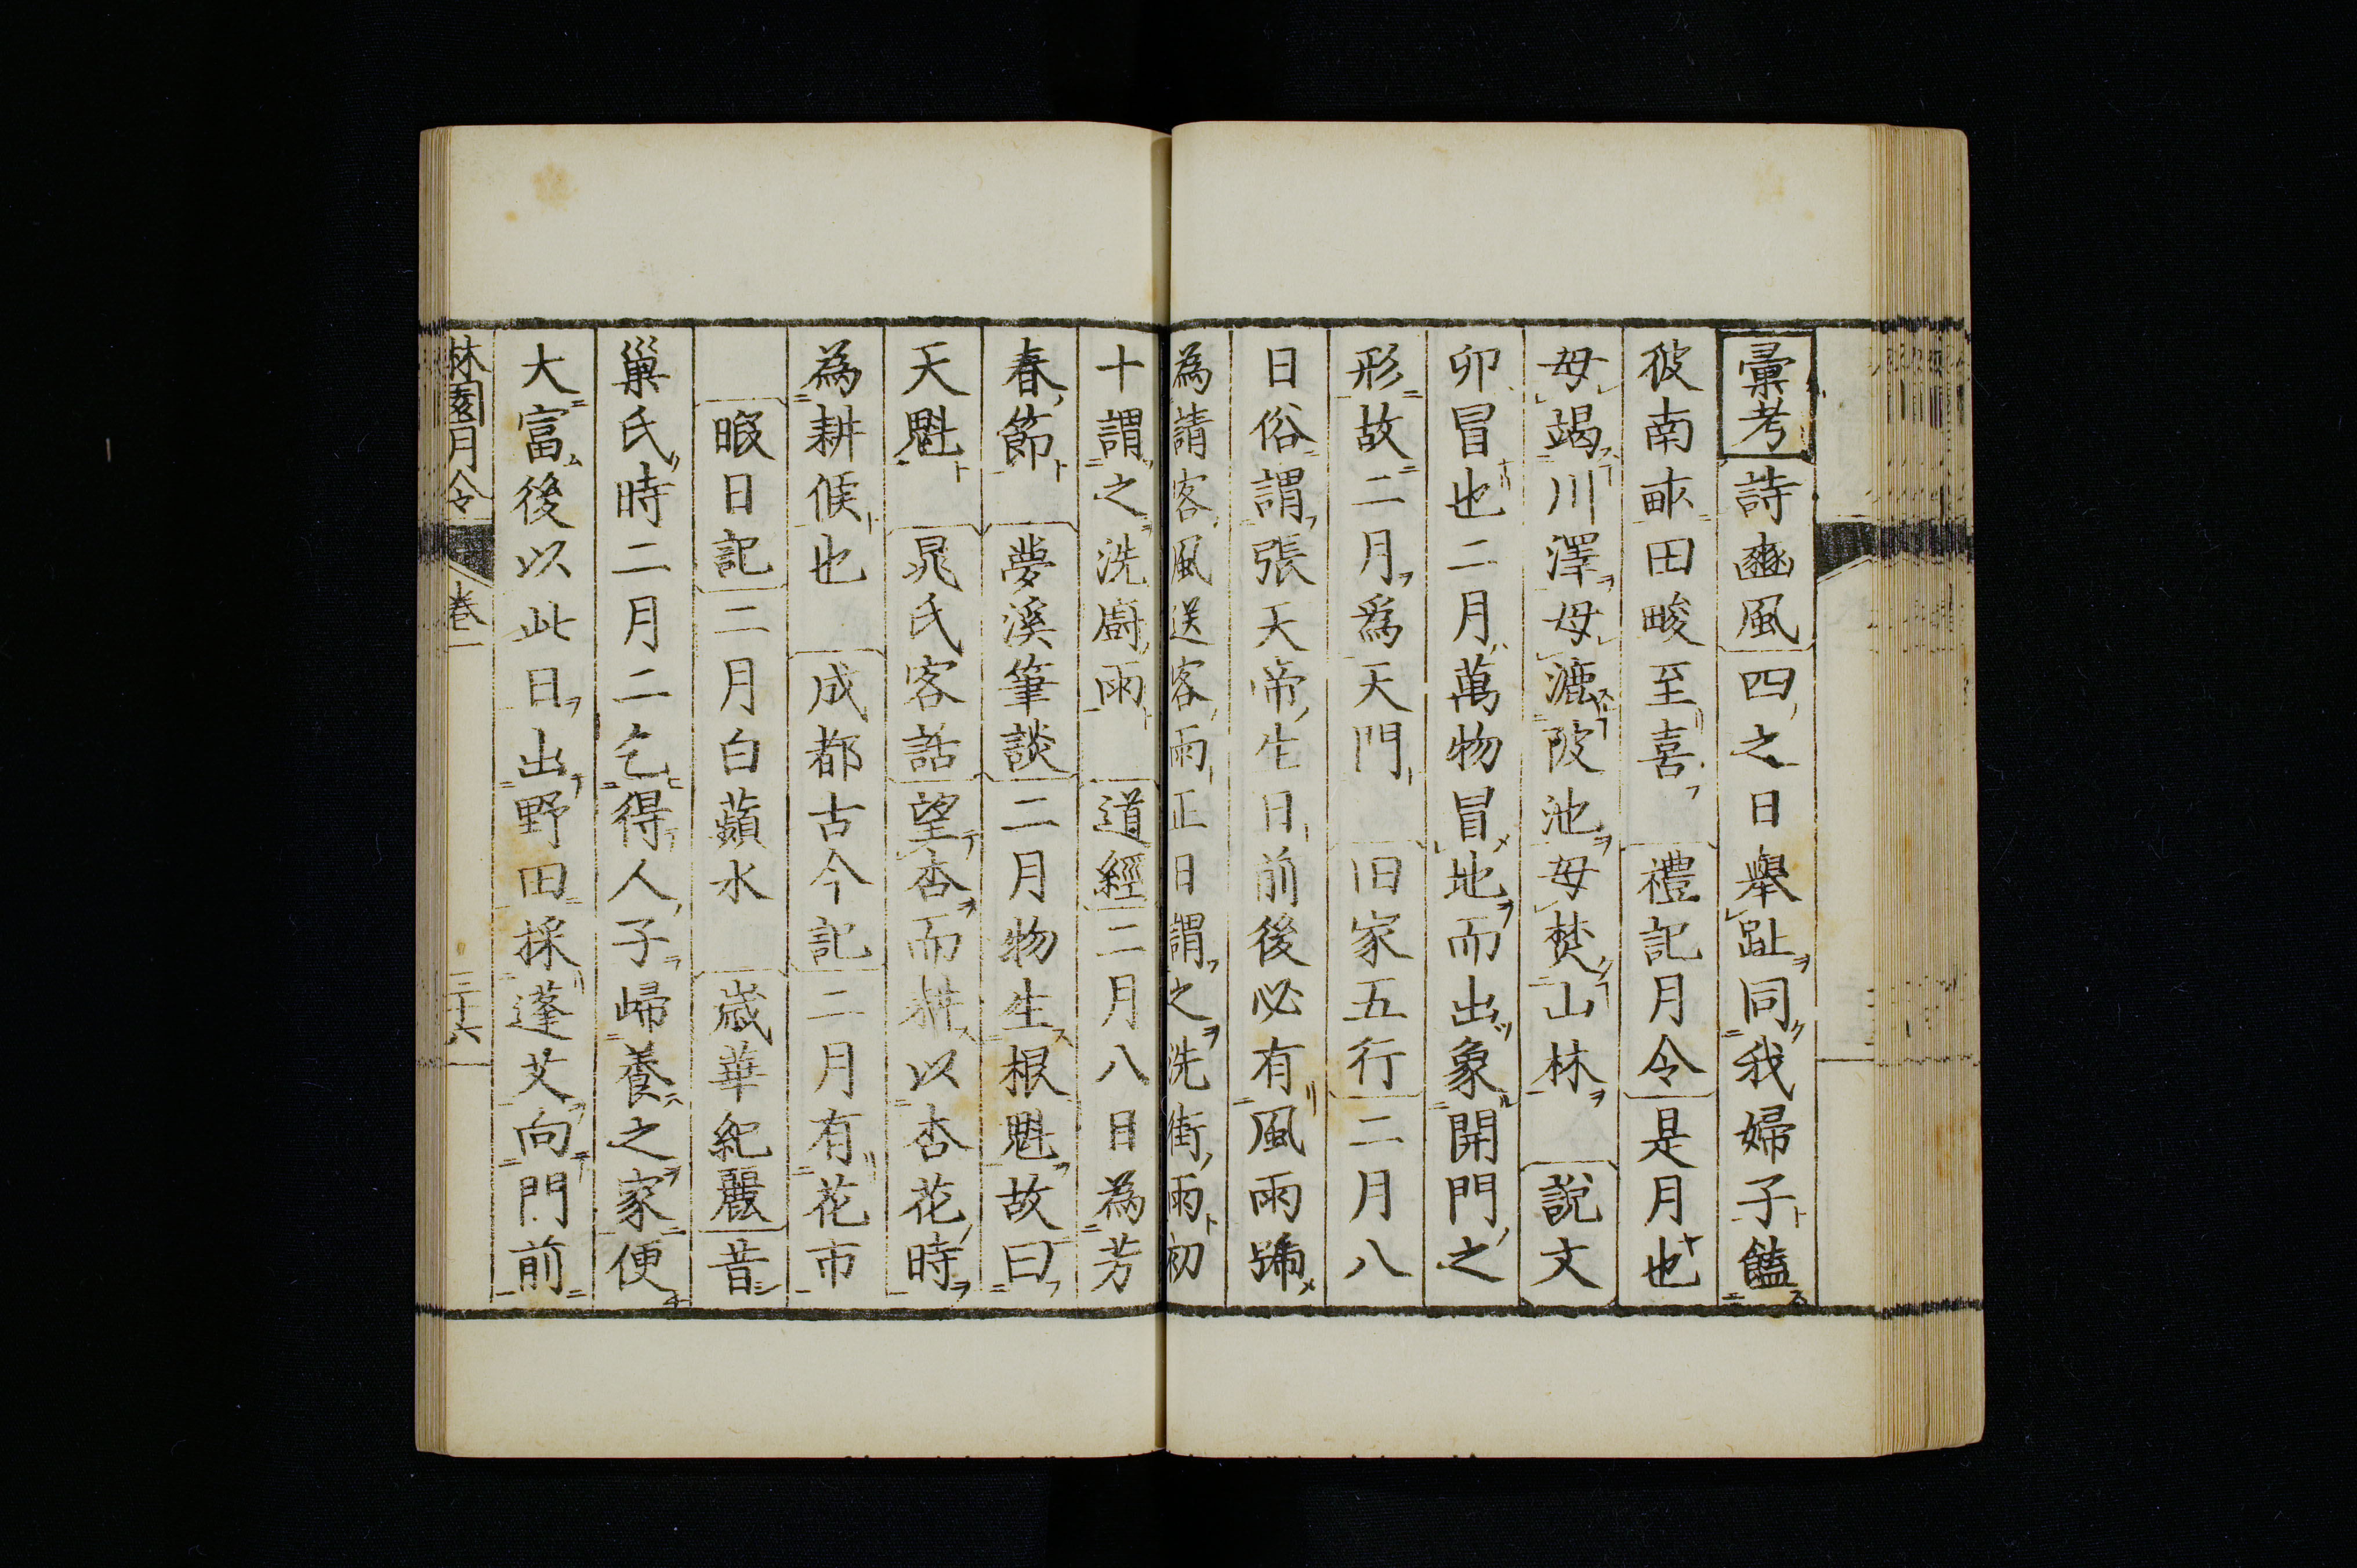 彙考詩豳風四之日舉趾同我婦子饁
彼南畝田畯至喜禮記月令是月也
毋竭川澤毋漉陂池毋焚山林說文
卯冒也二月萬物冒地而出象開門之
形故二月爲天門田家五行二月八
日俗謂張大帝生日前後必有風雨號
為請客風送客雨正日謂之洗街雨初
十謂之洗廚雨道經二月八日為芳
春節夢溪筆談二月物生根魁故曰
天魁晁氏客話望杏而耕以杏花時
為耕候也成都古今記二月有花市
暇日記二月白蘋水歲華紀麗昔
巢氏時二月二乞得人子歸養之家便
大富後以此日出野田採蓬艾向門前
林園月令 卷一 三十六